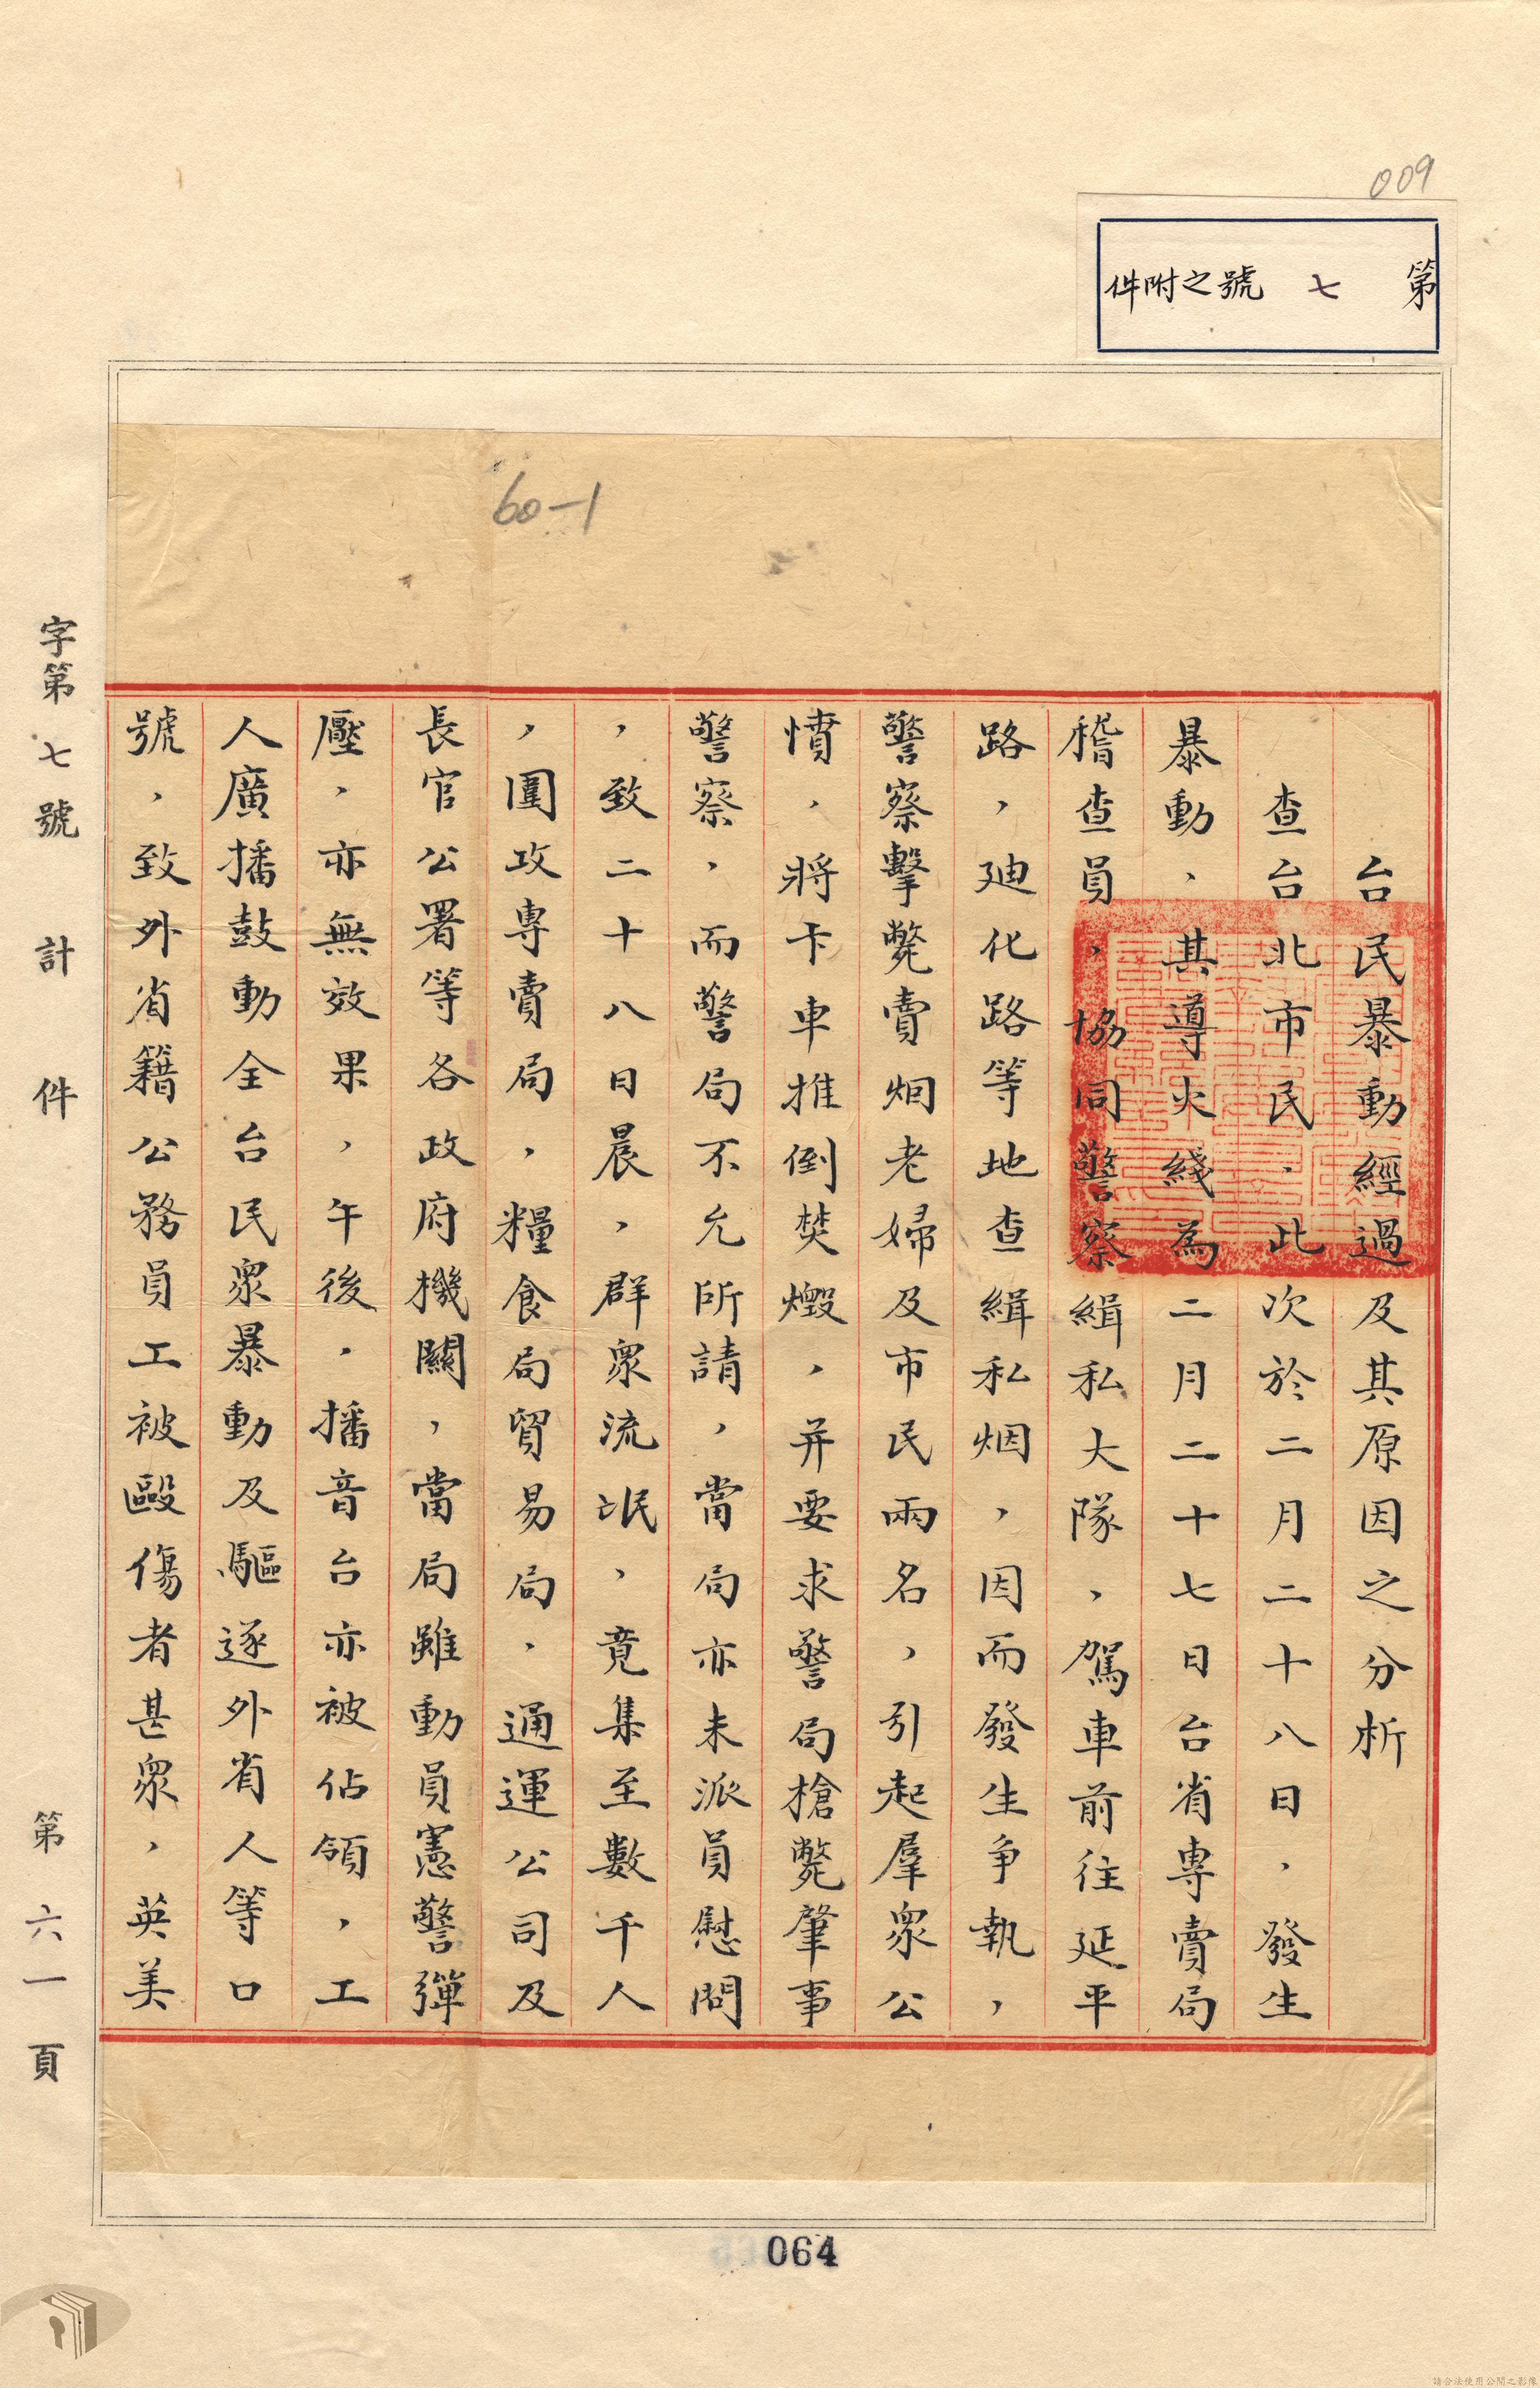 009
第 七 號之附件
60-1
台民暴動經過及其原因之分析
查台北市民,此次於二月二十八日,發生
暴動,其導火綫為二月二十七日台省專賣局
稽查員,協同警察緝私大隊,駕車前往延平
路,廸化路等地查緝私烟,因而發生爭執,
警察擊斃賣烟老婦及市民兩名,引起羣眾公
憤,將卡車推倒焚燬,并要求警局槍斃肇事
警察,而警局不允所請,當局亦未派員慰問
,致二十八日晨,群眾流氓,竟集至數千人
,圍攻專賣局,糧食局貿易局,通運公司及
長官公署等各政府機關,當局雖動員憲警彈
壓,亦無效果,午後,播音台亦被佔領,工
人廣播鼓動全台民眾暴動及驅逐外省人等口
號,致外省籍公務員工被毆傷者甚眾,英美
字第七號 計 件 第六一頁
064
請合法使用公開之影像